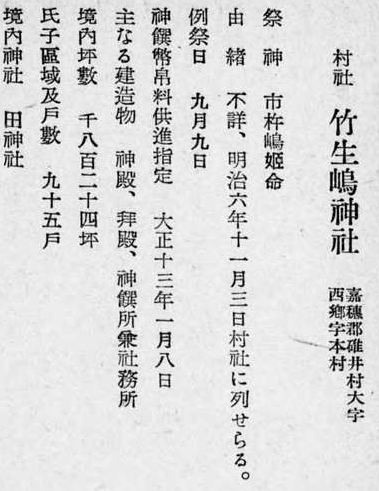 村社 竹生嶋神社 嘉穗郡碓井村大字
西鄕字本村
祭神 市杵嶋姬命
由緒 不詳、明治六年十一月三日村社に列せらる。
例祭日 九月九日
神饌幣帛料供進指定 大正十三年一月八日
主なる建造物 神殿、拜殿、神饌所兼社務所
境內坪數 千八百二十四坪
氏子區域及戶數 九十五戶
境內神社 田神社